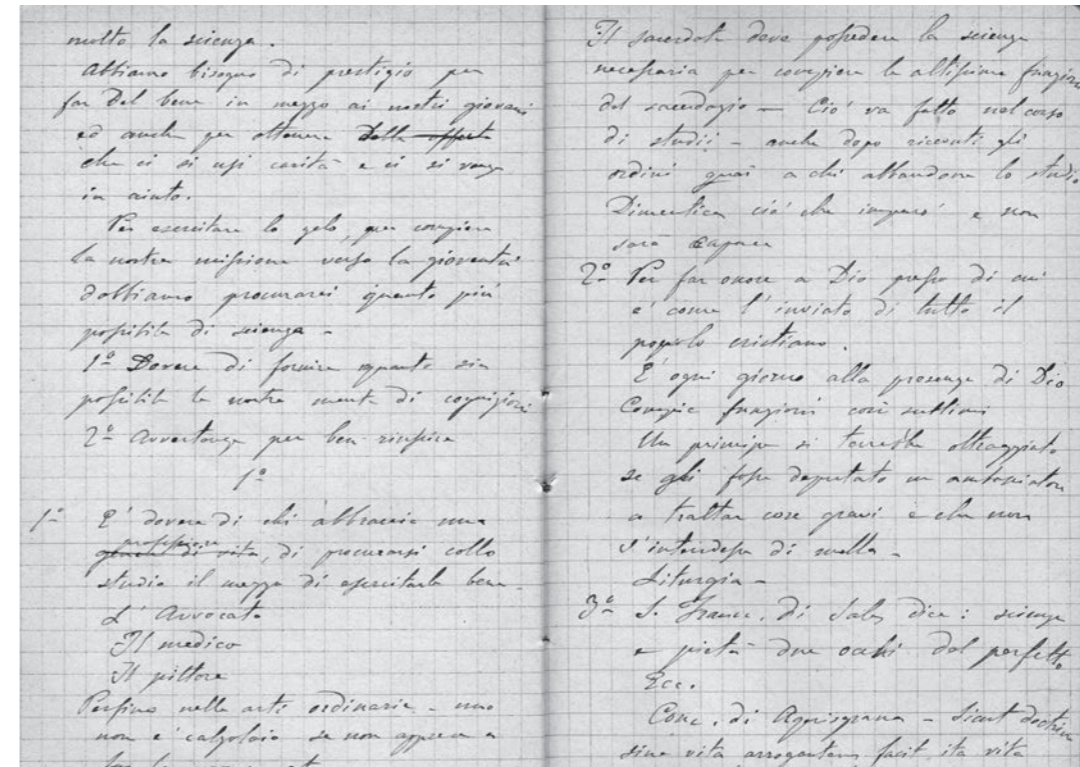 molto la scienza.
Abbiamo bisogno di prestigio per
far del bene in mezzo ai nostri giovani
ed anche per ottenere delle offerte
che ci si usi carità e ci si venga
in aiuto.
Per esercitare lo zelo, per compiere
la nostra missione verso la gioventù
dobbiamo procurarci quanto più
possibile di scienza -
1º Dovere di fornire quanto sia
possibile la nostra mente di cognizioni
2º Avvertenze per ben riuscire
1º
1º E' dovere di chi abbraccia una
professione
di vita, di procurarsi collo
studio il mezzo di esercitarla bene -
L' Avvocato
Il medico
Il pittore
Perfino nelle arti ordinarie - uno
non è calzolaio se non apprese a
Il sacerdote deve possedere la scienza
necessaria per compiere le altissime funzioni
del sacerdozio - Ciò va fatto nel corso
di studii - anche dopo ricevuti gli
ordini guai a chi abbandona lo studio
Dimentica ciò che imparò e non
sarà capace
2º Per far onore a Dio presso di cui
è come l'inviato di tutto il
popolo cristiano.
E ogni giorno alla presenza di Dio
Compie funzioni così sublimi
Un principe si terrebbe oltraggiato
se gli fosse deputato un
a trattar cose gravi e che non
s'intendesse di nulla -
Liturgia -
3º S. Franc. di Sales dice: scienza
e pietà due occhi del perfetto
Ecc.
Conc. di Aquisgrana - Sicut doctrina
sine vita arrogantem facit ita vita